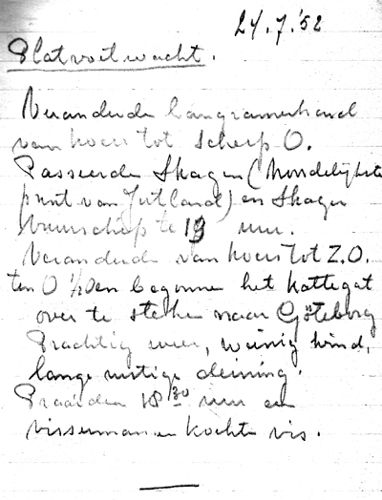 24.7.'52
Platvoetwacht.
Veranderde langzamerhand
van koers tot scherp O.
Passeerden Skagen (Noordelijkste
punt van Jutland) en Skagen
vuurschip te 13 uur.
Veranderde van koers tot Z.O.
ten O 1/2 O en begonnen het Kattegat
over te steken naar Göteborg
Prachtig weer, weinig wind,
lange rustige deining.
Praaiden 18 30 uur een
visserman en kochten vis.